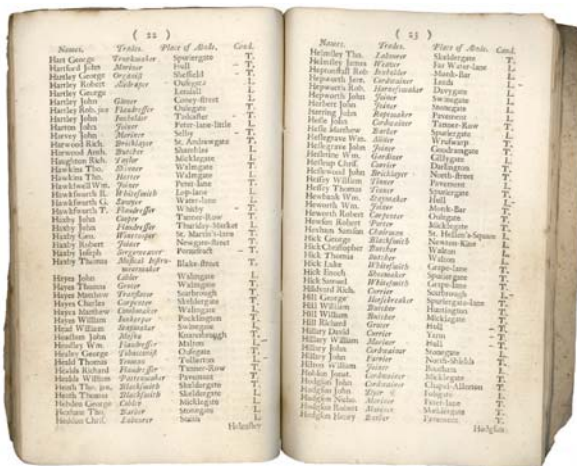 ( 22 )
Names. Trades. Place of Abode. Cond.
Hart George Trunkmaker Spuriergate T.
Hartford John Mariner Hull T.
Hartley George Organist Sheffield T.
Hartley Robert Ousegate L.
Hartley George Lendall L.
Hartley John Glover Coney-street L.
Hartley Rob. jun Flaxdresser Ousegate T.
Hartley John Innholder Tadcaster T.
Harton John Joiner Peter-lane-little L.
Harvey John Mariner Selby T.
Harwood Rich. Bricklayer St. Andrewgate T.
Harwood Anth. Butcher Shambles L.
Haughton Rich. Taylor Micklegate L.
Hawkins Tho. Skinner Walmgate T.
Hawkins Tho. Walmgate L.
Hawkswell Wm. Joiner Peter-lane T.
Hawksworth R. Whitesmith Lop-lane L.
Hawksworth G. Sawyer Water-lane L.
Hawksworth T. Flaxdresser Whitby T.
Haxby John Cooper Tanner-Row T.
Haxby John Flaxdresser Thursday-Market L.
Haxby Geo. Winecooper St. Martin's-lane T.
Haxby Robert Joiner Newgate-street T.
Haxby Joseph Sergeweaver Pontefract T.
Haxby Thomas Musical Instru-mentmaker Blake-street T.
Hayes John Cobler Walmgate L.
Hayes Thomas Grocer Walmgate T.
Hayes Matthew Translator Scarbrough T.
Hayes Charles Carpenter Skeldergate T.
Hayes Matthew Combmaker Walmgate L.
Hayes William Innkeeper Pocklington T.
Head William Staymaker Swinegate L.
Headlam John Knaresbrough T.
Headley Wm. Flaxdresser Malton L.
Healey George Tobacconist Ousegate T.
Heald Thomas Yeoman Tollerton T.
Healds Richard Flaxdresser Tanner-Row T.
Healds William Pavement L.
Heath Tho. jun. Blacksmith Skeldergate T.
Heath Thomas Blacksmith Skeldergate L.
Hebden George Cobler Micklegate L.
Tho. Barber Stonegate L.
Hebden Chris. Labourer L.
Helmsley
( 23 )
Names. Trades. Place of Abode. Cond.
Helmsley Tho. Labourer Skeldergate T.
Helmsley James Far Water-lane L.
Heptonstall Rob. Innholder Monk-Bar L.
Hepworth Jere. Cordwainer Leeds T.
Hepworth Rob. Harnessmaker Davygate L.
Hepworth John Joiner Swinegate L.
Herbert John Joiner Stonegate T.
Herring John Ropemaker Pavement T.
Hesle John Cordwainer Tanner-Row T.
Hesle Matthew Barber Spuriergate T.
Heslegrave Wm. T.
Heslegrave John Joiner Goodramgate T.
Hesletine Wm. Gardiner Gillygate L.
Heslop Chris. Currier Darlington T.
Heslewood John Bricklayer North-street T.
Hessey William Tinner Pavement T.
Hessey Thomas Tinner Spuriergate T.
Hewbank Wm. Staymaker Hull L.
Heworth Wm. Joiner Monk-Bar T.
Heworth Robert Carpenter Ousegate T.
Hewson Robert Porter Micklegate T.
Chairman St. Hellen's-Square L.
Hick George Blacksmith L.
Hick Christopher Butcher Walton L.
Hick Thomas Butcher Walton L.
Hick Luke Whitesmith Grape-lane T.
Hick Enoch Shoemaker Spuriergate T.
Hick Samuel Whitesmith Grape-lane T.
Hildyard Rich. Currier Scarbrough L.
Hill George Horsebreaker Spuriergate-lane T.
Hill William Butcher Huntington T.
Hill William Butcher Micklegate T.
Hill Richard Grocer Hull T.
Hillary David Currier Yarm T.
Hillary William Mariner Hull T.
Hillary John Cordwainer Stonegate T.
Hillary John Farrier North-Shields T.
Hilton William Joiner Bootham L.
Hobson Jonat. Cordwainer Micklegate T.
Hodgson John Cordwainer Chapel-Allerton T.
Hodgson John L.
Hodgson Nicho. Mariner Peter-lane T.
Hodgson Robert Skeldergate T.
Hodgson Henry Barber Pavement T.
Hodgson